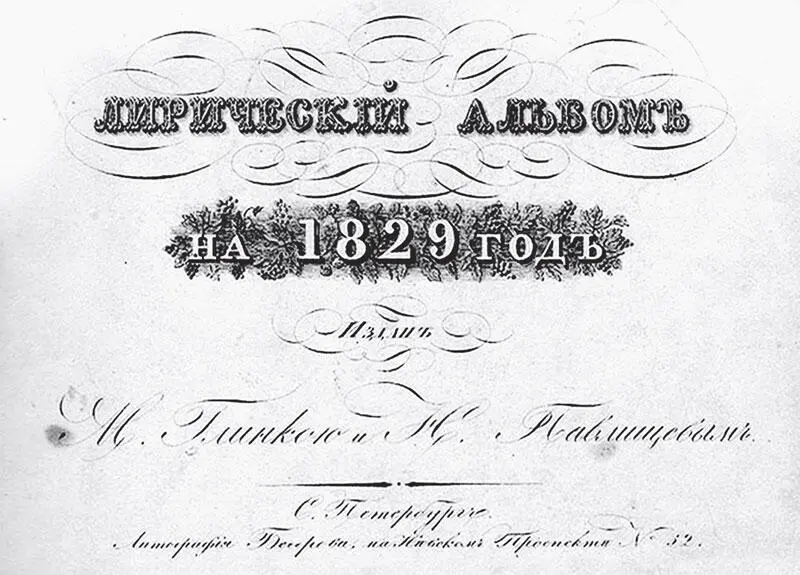 ЛИРИЧЕСКIЙ АЛЬБОМЪ
НА 1829 ГОДЪ
Изданъ
М. Глинкою и Н. Павлищевымъ.
С. Петербургъ.
Литографія Бегрова, на Невскомъ Проспектѣ № 52.